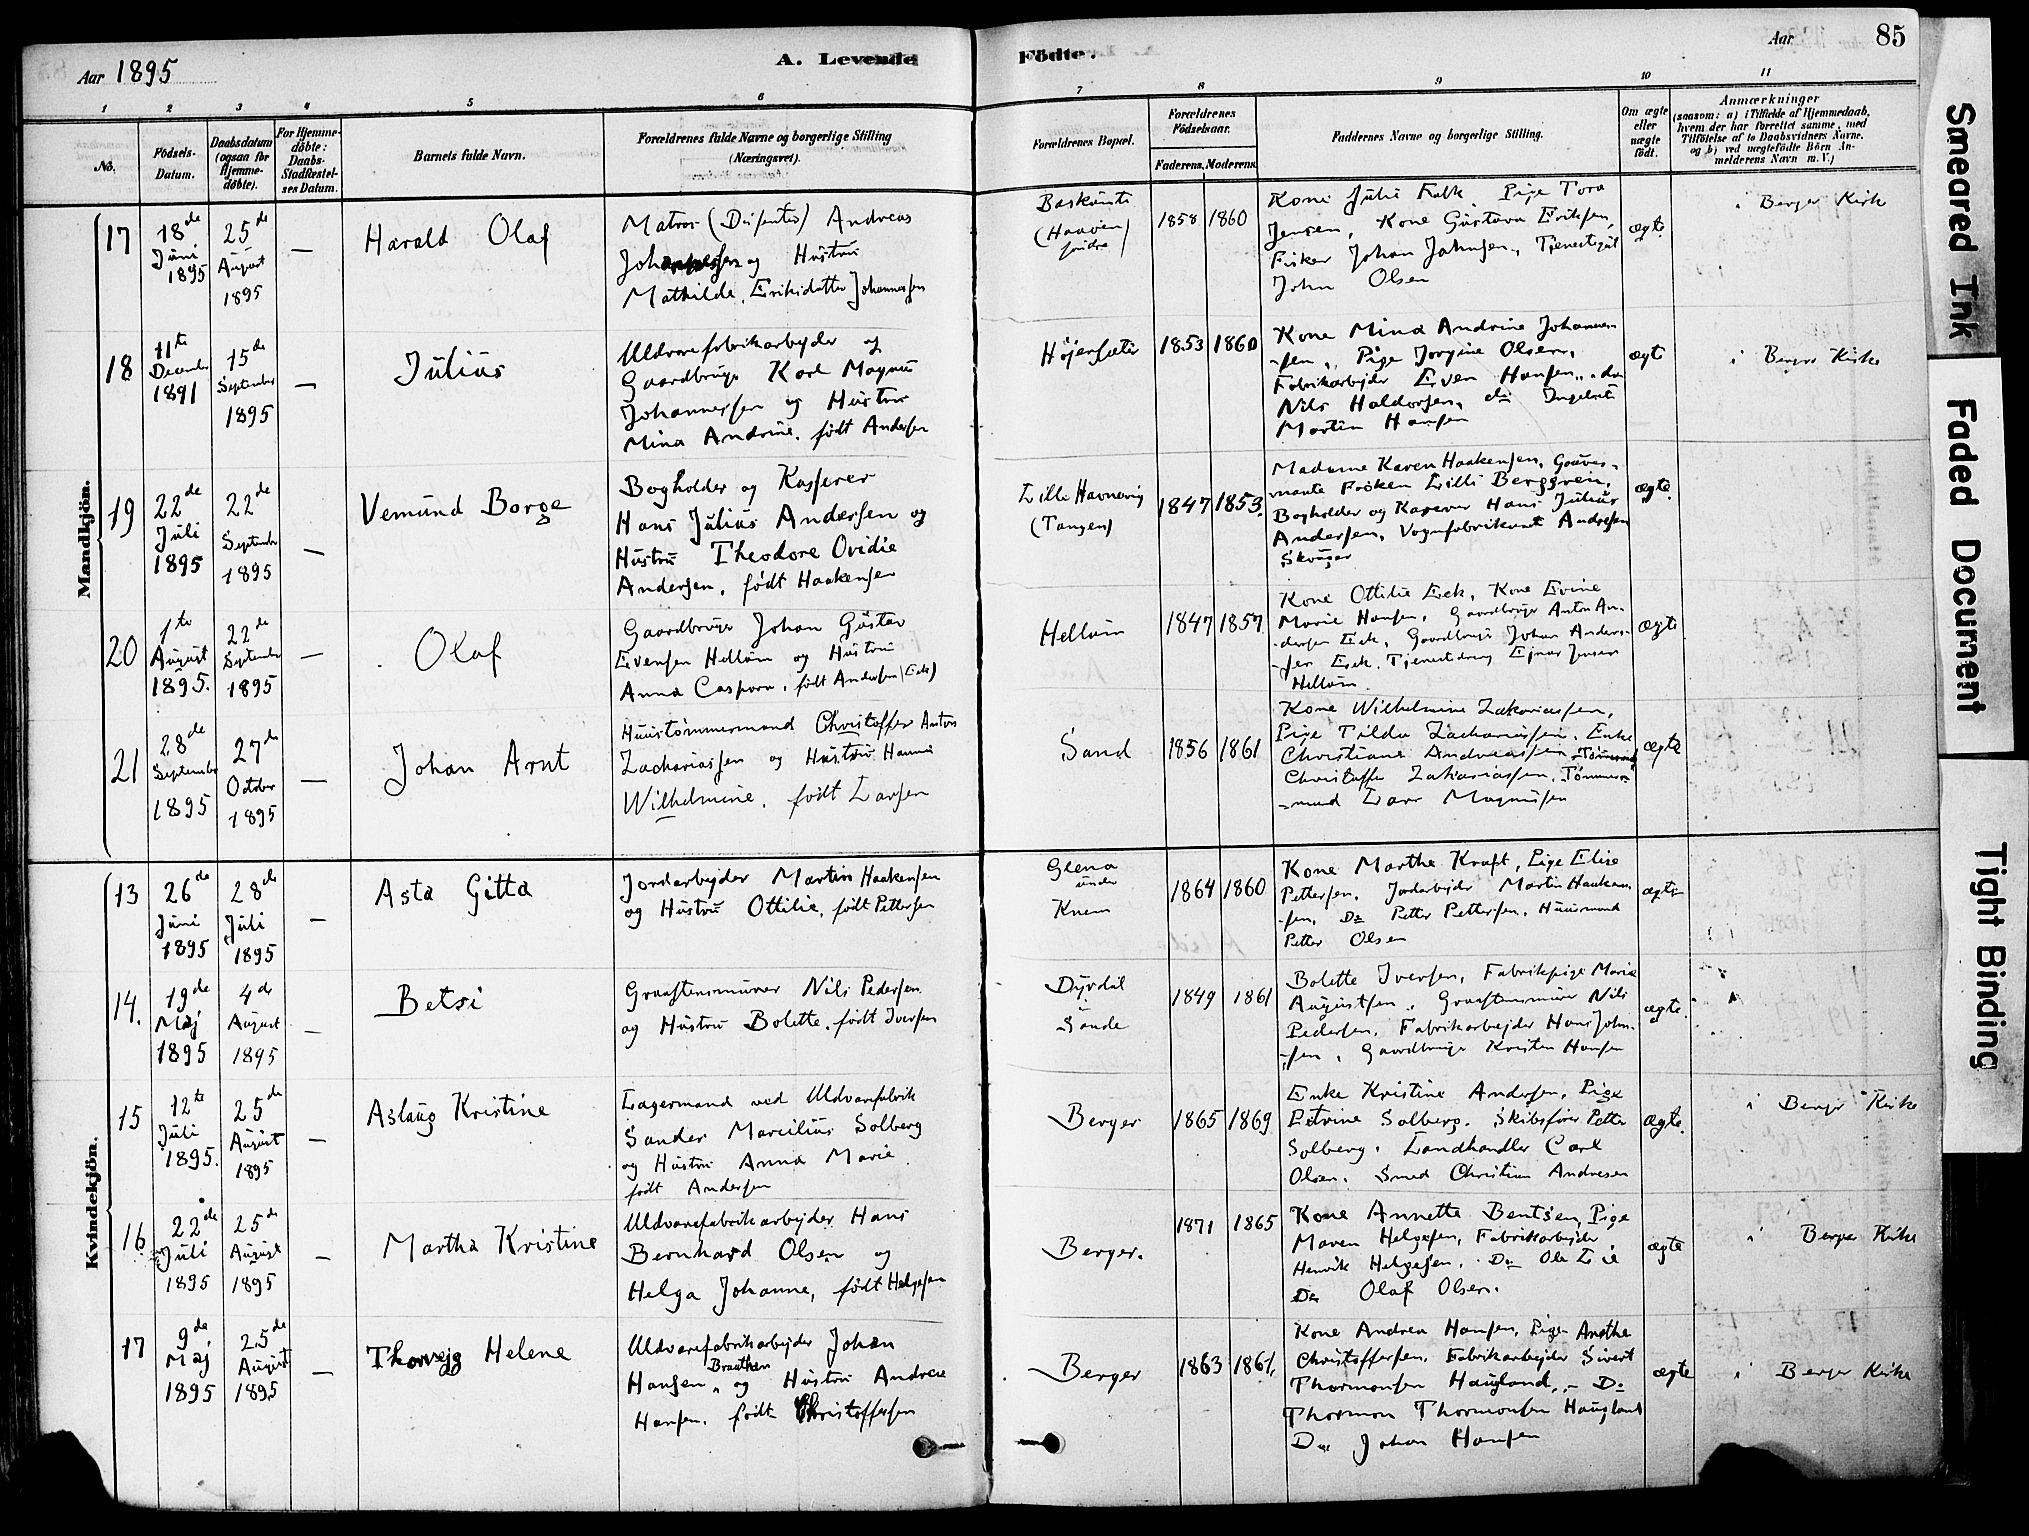 Aar 1895
A. Levende
Födte.
Aar
85
1
2
3
4
5
6
7
8
9
10
11
No.
Födsels-
Datum.
Daabsdatum
(ogsaa for
Hjemme-
döbte).
For Hjemme-
döbte:
Daabs-
Stadfæstel-
ses Datum.
Barnets fulde Navn.
Forældrenes fulde Navne og borgerlige Stilling
(Næringsvei).
Forældrenes Bopæl.
Forældrenes
Födselsaar.
Faderens.
Moderens.
Faddernes Navne og borgerlige Stilling.
Om ægte
eller
uægte
födt.
Anmærkninger
(saasom: a) i Tilfælde af Hjemmedaab,
hvem der har forrettet samme, med
Tilföielse af to Daabsvidners Navne,
og b) ved uægtefödte Börn An-
melderens Navn m. V.)
Mandkjön.
17
18de
Juni
1895
25de
August
1895
—
Harald Olaf
Matros Andreas
og Hustru
Mathilde, Eriksdatter Johannessen
(Haaven)
1858
1860
Kone Julie Falk, Pige Tora
Jensen, Kone Gustava Eriksen,
Fisker Johan Jahnsen, Tjenestegut
John Olsen
ægte
i Berger Kirke
18
11te
December
1891
15de
September
1895
—
Julius
Uldvarefabrikarbejder og
Gaardbruger Karl Magnus
Johannessen og Hustru
Mina Andrine, født Andersen
1853
1860
Kone Mina Andrine Johannes-
-sen, Pige Jorgine Olsen,
Fabrikarbejder Even Hansen, do
Nils Haldorsen, do
Martin Hansen
ægte
i Berger Kirke
19
22de
Juli
1895
22de
September
1895
—
Vemund Borge
Bogholder og Kasserer
Hans Julius Andersen og
Hustru Theodore Ovidie
Andersen, født Haakensen
Lille Havnevig
(Tangen)
1847
1853.
Madame Karen Haakensen, Gouver-
nante Frøken Lilli Berggren,
Bogholder og Kasserer Hans Julius
Andersen, Vognfabrikant Andresen
Skouger
ægte
20
1te
August
1895.
22de
September
1895
—
Olaf
Gaardbruger Johan Gustav
Evensen Hellum og Hustru
Anna Caspara, født Andersen (Eek)
Hellum
1847
1857
Kone Ottilie Eek, Kone Evine
Marie Hansen, Gaardbruger Anton An-
dersen Eek, Gaardbruger Johan Anders-
-sen Eek, Tjenestedreng Ejnar Jensen
Hellum
ægte
21
28de
September
1895
27de
October
1895
—
Johan Arnt
Huustømmermand Christoffer Anton
Zachariassen og Hustru Hanna
Wilhelmine, født Larsen
Sand
1856
1861
Kone Wilhelmine Zakariassen,
Pige Tilda Zachariassen, Enke
Christiane Andreassen, Tømmermd
Christoffer Zakariassen, Tømmer-
-mand Lars Magnussen
ægte
Kvindekjön.
13
26de
Juni
1895
28de
Juli
1895
—
Asta Gitta
Jordarbejder Martin Haakensen
og Hustru Ottilie, født Pettersen
Glena
under
Knem
1864
1860
Kone Marthe Kraft, Pige Elise
Pettersen, Jordarbejder Martin Haaken-
-sen, Do Petter Pettersen, Huusmand
Petter Olsen
ægte
14.
19de
Maj
1895
4de
August
1895
—
Betsi
Graastensmurer Nils Pedersen
og Hustru Bolette, født Iversen
Dyrdal
Sande
1849
1861
Bolette Iversen, Fabrikpige Marie
Augustsen, Graastensmurer Nils
Pedersen, Fabrikarbejder Hans John-
-sen, Gaardbruger Kristen Hansen
ægte.
15
12te
Juli
1895.
25de
August
1895
—
Aslaug Kristine
Lagermand ved Uldvarefabrik
Sander Marcilius Solberg
og Hustru Anna Marie
født Andersen
Berger
1865
1869
Enke Kristine Andersen, Pige
Petrine Solberg, Skibsfører Petter
Solberg, Landhandler Carl
Olsen, Smed Christian Andresen
ægte.
i Berger Kirke
16
22de
Juli
1895
25de
August
1895
—
Martha Kristine
Uldvarefabrikarbejder Hans
Bernhard Olsen og
Helga Johanne, født Helgesen
Berger.
1871
1865
Kone Annette Bentsen, Pige
Maren Helgesen, Fabrikarbejder
Henrik Helgesen, Do Ole Lie
Do Olaf Olsen.
ægte
i Berger Kirke
17
9de
Maj
1895
25de
August
1895
—
Thorvejg Helene
Uldvarefabrikarbejder Johan
Braathen
Hansen, og Hustru Andrea
Hansen, født Christoffersen
Berger
1863
1861
Kone Andrea Hansen, Pige Anethe
Christoffersen, Fabrikarbejder Sivert
Thormonsen Haugland, - Do
Thormon Thormonsen Haugland
Do Johan Hansen
ægte
i Berger Kirke
Smeared Ink
Faded Document
Tight Binding